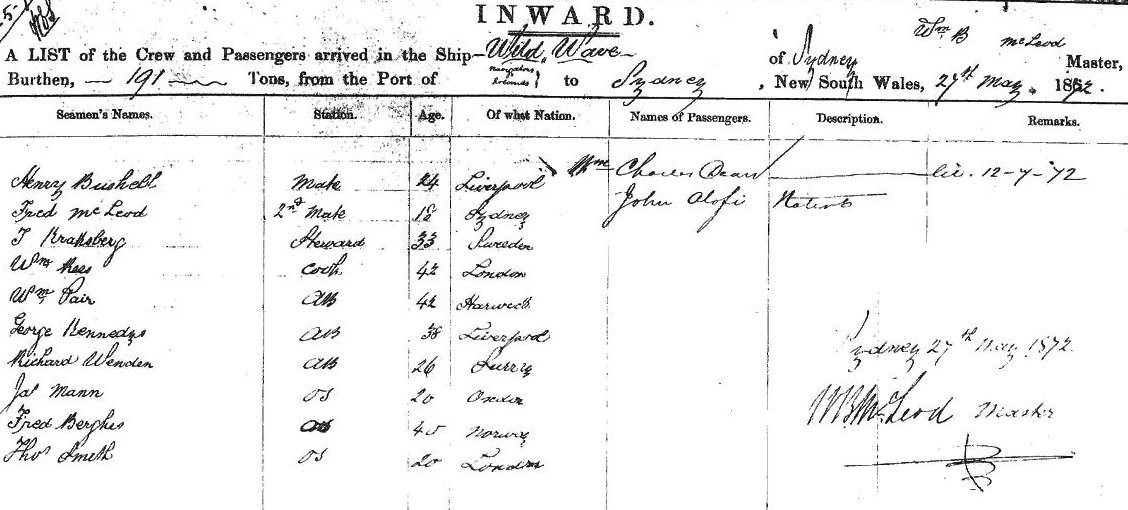 INWARD.
Wm B McLeod
A LIST of the Crew and Passengers arrived in the Ship Wild Wave of Sydney Master,
Burthen, 191 Tons, from the Port of Navigators Islands to Sydney, New South Wales, 27th May 1872.
Seamen's Names. Station. Age. Of what Nation. Names of Passengers. Description. Remarks.
Henry Bushell Mate 24 Liverpool Wm Charles Dean lic. 12-7-72
Fred McLeod 2nd Mate 18 Sydney John Alofi Native
J Steward 33 Sweden
Wm Rees Cook 42 London
Wm Pair AB 42 Harwich
George Kennedys AB 38 Liverpool
Richard Wenden AB 26 Surry
Jas Mann OS 20
Fred Berghes AB 40 Norway
Thos Smith OS 20 London
Sydney 27th May 1872.
WB McLeod Master